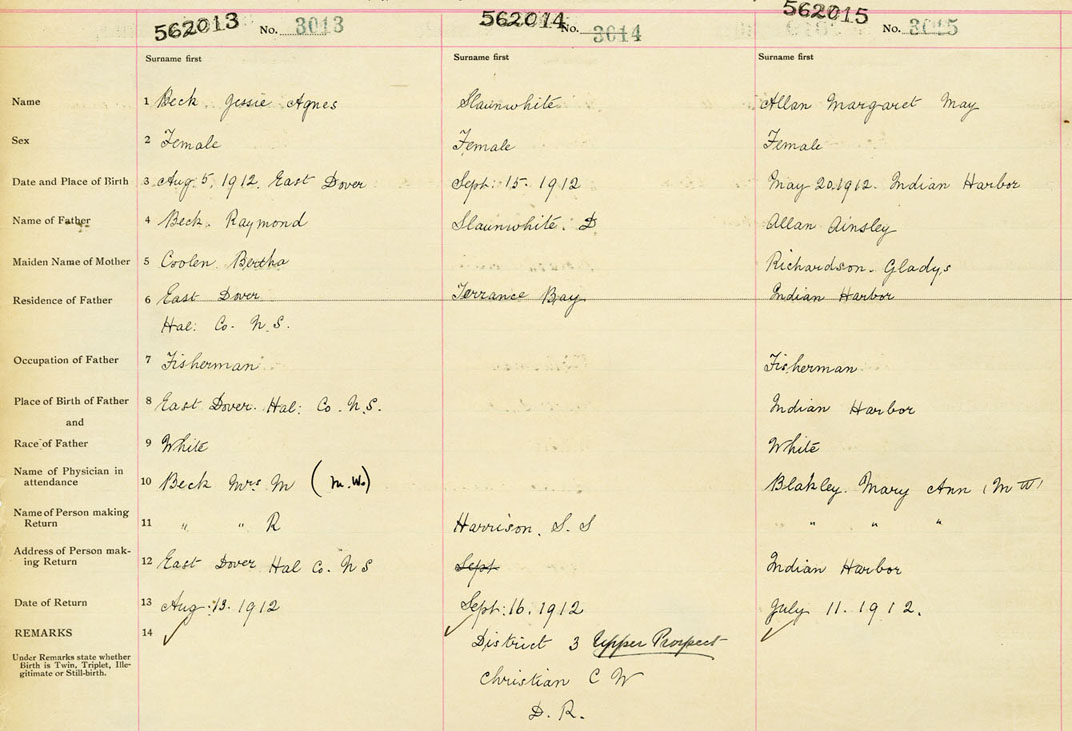 562013 No. 3013 562014 No. 3014 562015 No. 3015
Surname first Surname first Surname first
Name 1 Beck Jessie Agnes Slaunwhite Allan Margaret May
Sex 2 Female Female Female
Date and Place of Birth 3 Aug. 5, 1912. East Dover Sept: 15. 1912 May 20.1912. Indian Harbor
Name of Father 4 Beck. Raymond Slaunwhite. D Allan Ainsley
Maiden Name of Mother 5 Coolen Bertha Richardson. Gladys
Residence of Father 6 East Dover Terrance Bay Indian Harbor
Hal: Co. N.S.
Occupation of Father 7 Fisherman Fisherman
Place of Birth of Father 8 East Dover. Hal: Co. N.S. Indian Harbor
and
Race of Father 9 White White
Name of Physician in
attendance 10 Beck Mrs M (M.W.) Blakley. Mary Ann (M W)
Name of Person making
Return 11 " " R Harrison. S. S " " "
Address of Person mak-
ing Return 12 East Dover Hal Co. N S Sept Indian Harbor
Date of Return 13 Aug. 13. 1912 Sept: 16. 1912 July 11. 1912.
REMARKS 14 District 3 Upper Prospect
Under Remarks state whether
Birth is Twin, Triplet, Ille-
gitimate or Still-birth.
Christian C W
D. R.